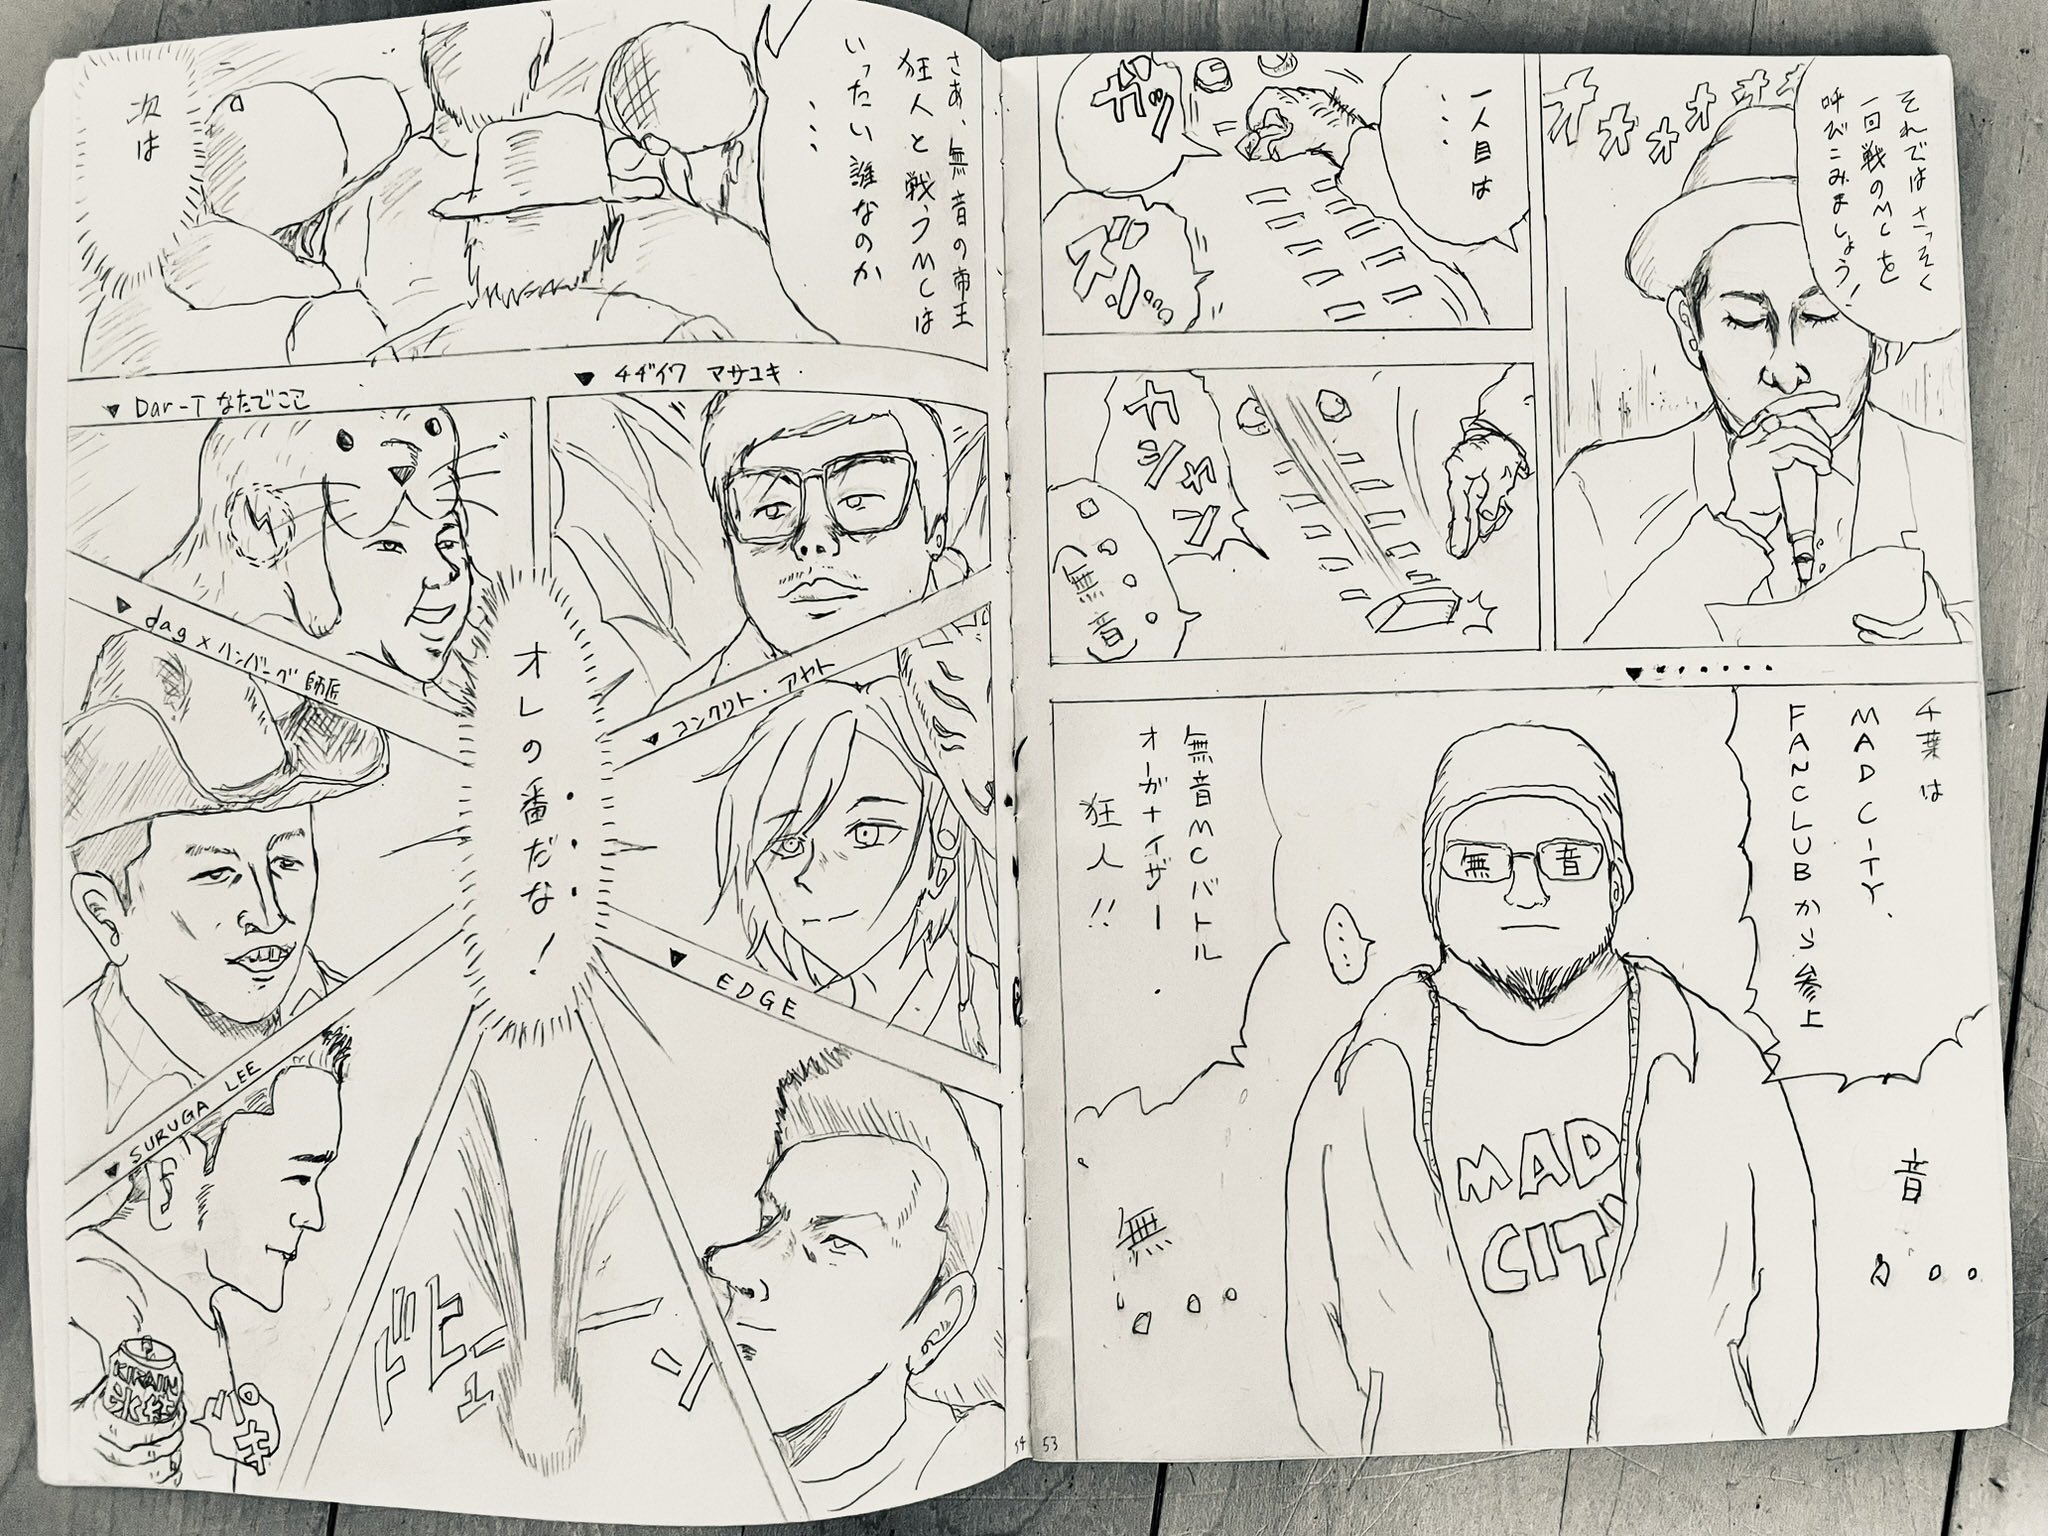 それではさっそく
一回戦のMCを
呼びこみましょう!
オオオオオ
一人目は
・・・
ガッ
ズン・・・
ガシャン
無音
千葉は
MAD CITY、
FANCLUBから参上
無音MCバトル
オーガナイザー
狂人!!
無 音
・・・
MAD
CITY
音・・・
無・・・
53
さあ、無音の帝王
狂人と戦うMCは
いったい誰なのか
・・・
次は
▼チヂイワ マサユキ
▼Dar-T なたでここ
オレの番だな!
▼コンクリト・アヤト
▼dag×ハンバーグ師匠
▼EDGE
▼SURUGA LEE
KIRAIN
氷結
バキ
ドヒューン
54